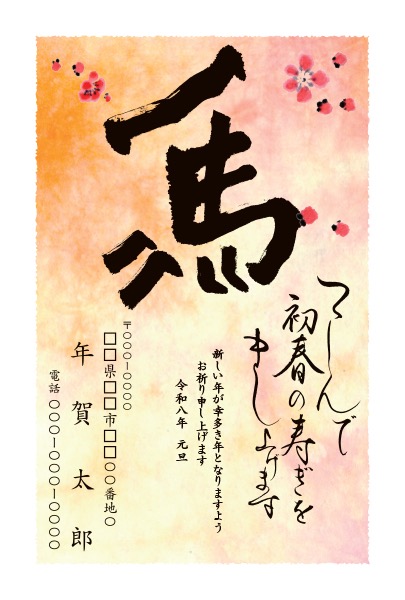 馬
つゝしんで
初春の寿ぎを
申し上げます
新しい年が幸多き年となりますよう
お祈り申し上げます
令和八年　元旦
〒○○○-○○○○
□□県□□市□□○○番地○
年賀太郎
電話　○○○-○○○-○○○○